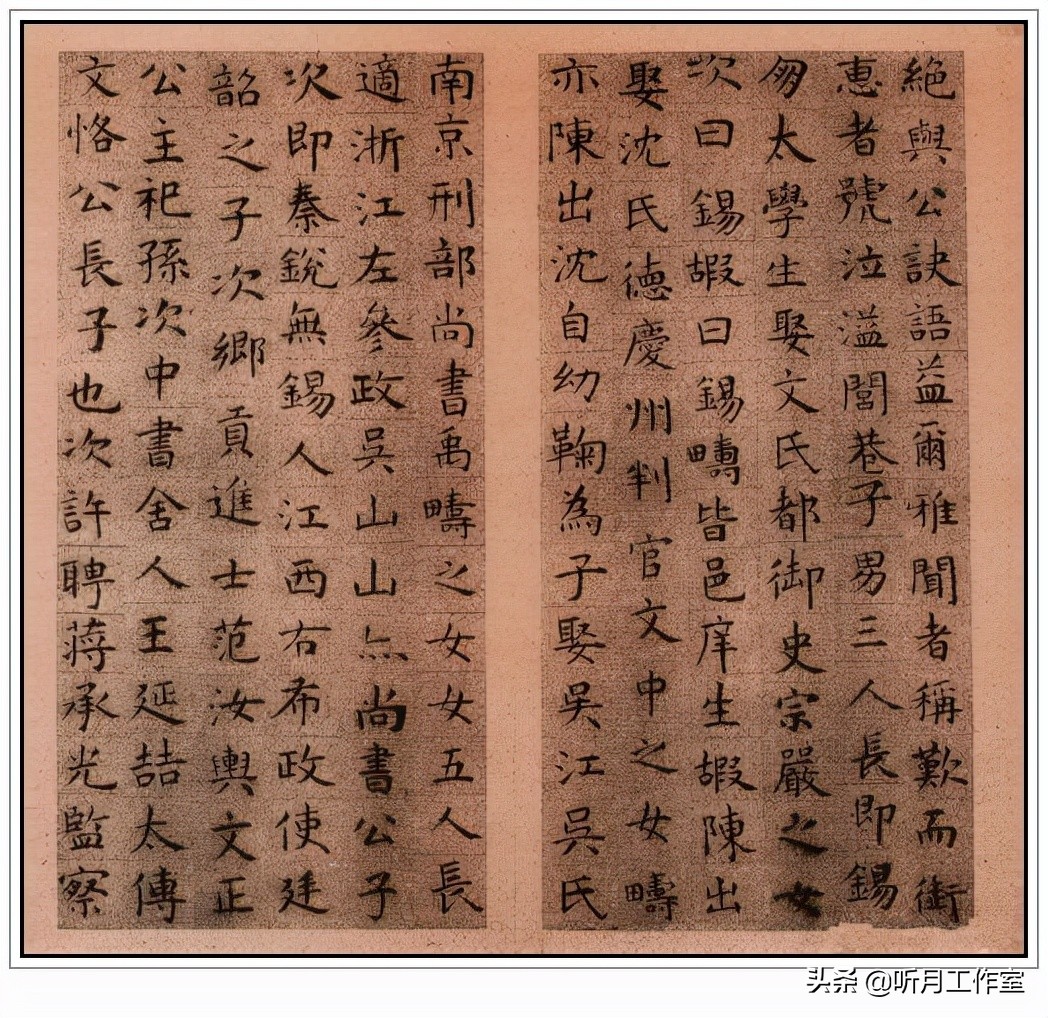 絕與公訣語益爾雅聞者稱歎而銜
惠者號泣溢閭巷子男三人長即錫
太學生娶文氏都御史宗嚴之女
次曰錫嘏曰錫疇皆邑庠生嘏陳出
娶沈氏德慶州判官文中之女疇
亦陳出沈自幼鞠為子娶吳江吳氏
南京刑部尚書禹疇之女女五人長
適浙江左參政吳山山亦尚書公子
次即秦銳無錫人江西右布政使廷
韶之子次鄉貢進士范汝輿文正
公主祀孫次中書舍人王延喆太傅
文恪公長子也次許聘蒋承光監察
头条 @听月工作室